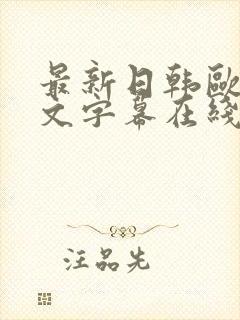 最新日韩欧
文字幕在线
汪品先